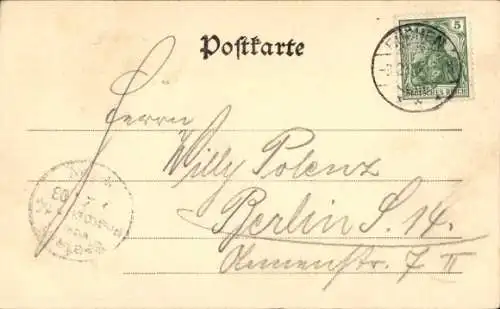 Postkarte
5
DEUTSCHES REICH
Herrn
Willy Polenz
Berlin S. 14.
Annenstr. 7 II
03